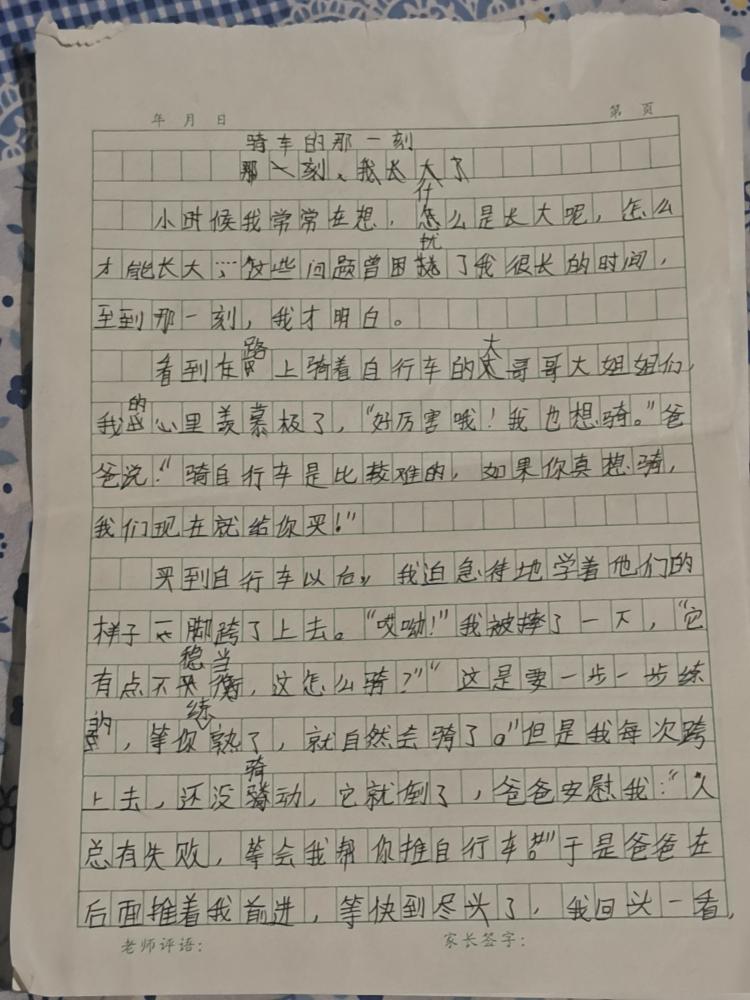 年 月 日 第 页
骑车的那一刻
那一刻、我长大了
什
小时候我常常在想，怎么是长大呢，怎么
扰
才能长大…这些问题曾困了我很长的时间，
至到那一刻，我才明白。
路 大
看到在上骑着自行车的哥哥大姐姐们，
的
我心里羡慕极了，“好厉害哦！我也想骑。”爸
爸说：“骑自行车是比较难的，如果你真想骑，
我们现在就给你买！”
买到自行车以后，我迫急待地学着他们的
样子一脚跨了上去。“哎呦！”我被摔了一下，“它
稳当
有点不平衡，这怎么骑？”“这是要一步一步练
的 练
，等你熟了，就自然会骑了。”但是我每次跨
骑
上去，还没动，它就倒了，爸爸安慰我：“人
总有失败，等会我帮你推自行车。”于是爸爸在
后面推着我前进，等快到尽头了，我回头一看，
老师评语： 家长签字：